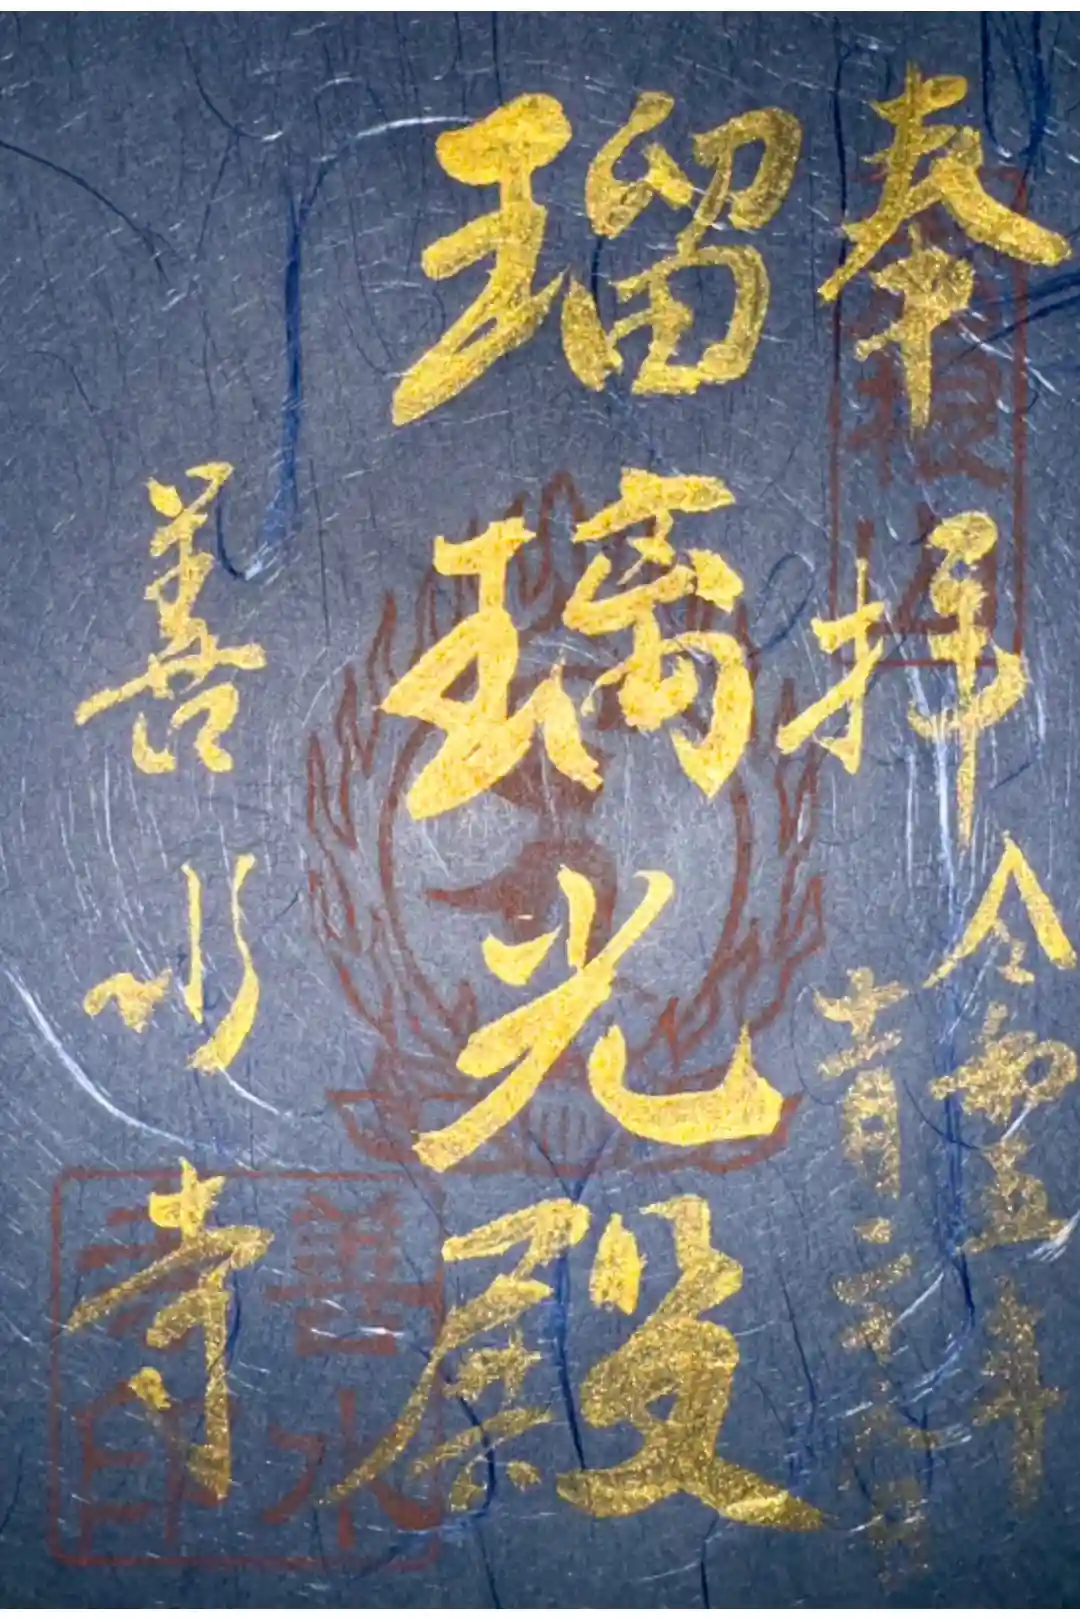 奉拝
令和五年
瑠璃光殿
善水寺
岩根山
善水寺印